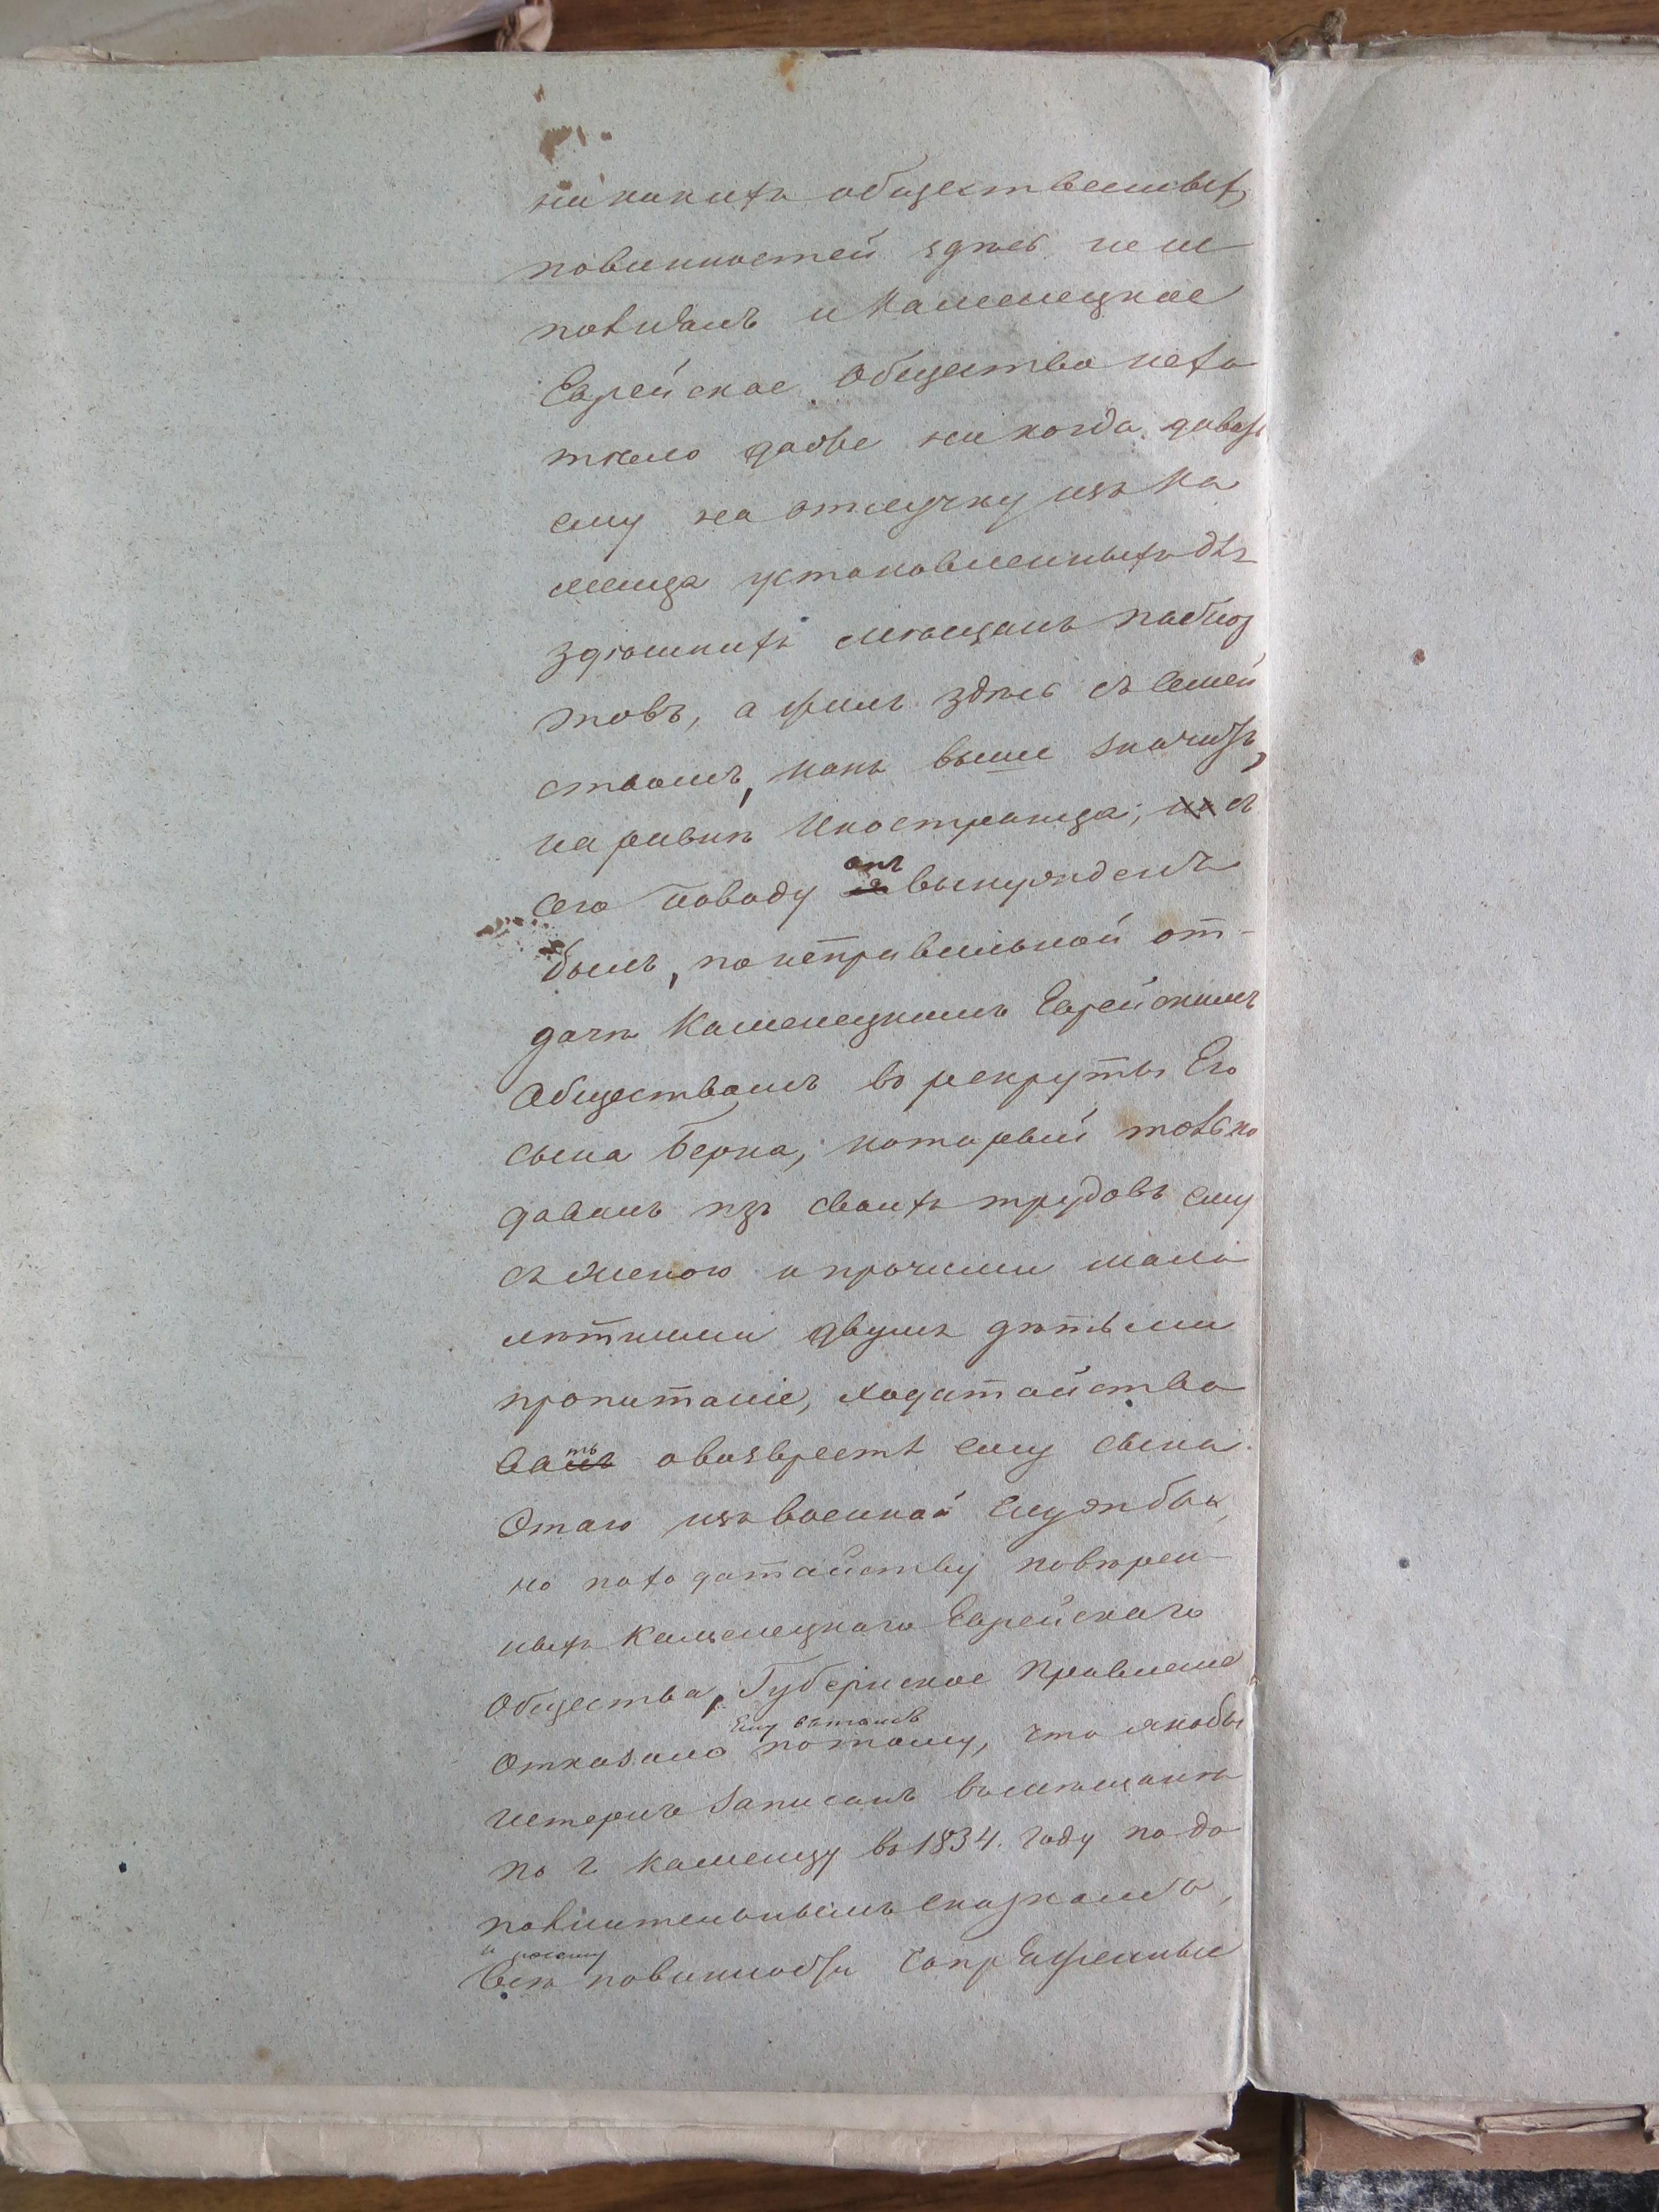 никакихъ общественныхъ
повинностей здѣсь не ис
полнялъ и Каменецкое
Еврейское Общество не хо
тѣло даже никогда давать
ему на отлучку изъ Ка
менца установленныхъ для
здѣшнихъ мѣщанъ паспор
товъ, а жилъ здѣсь съ семей
ствомъ, какъ выше значитъ,
на равнѣ Иностранца; но съ
сего поводу онъ вынужденъ
былъ, по неправильной от-
дачи Каменецкимъ Еврейскимъ
Обществомъ въ рекруты Его
сына Берка, который только
давалъ изъ своихъ трудовъ ему
съ женою и прочими мало
лѣтними двумя дѣтьми
пропитаніе, ходатайство
вать о возвратѣ ему сына
Этаго изъ военной службы,
но по ходатайству повѣрен-
ныхъ Каменецкаго Еврейскаго
Общества, Губернское Правленіе
Ему въ томъ
Отказало потому, что якобы
Истеръ записанъ въ мѣщане
по г. Каменцу въ 1834. году по до
полнительнымъ сказкамъ,
и потому
Всѣ повинности сопряженные